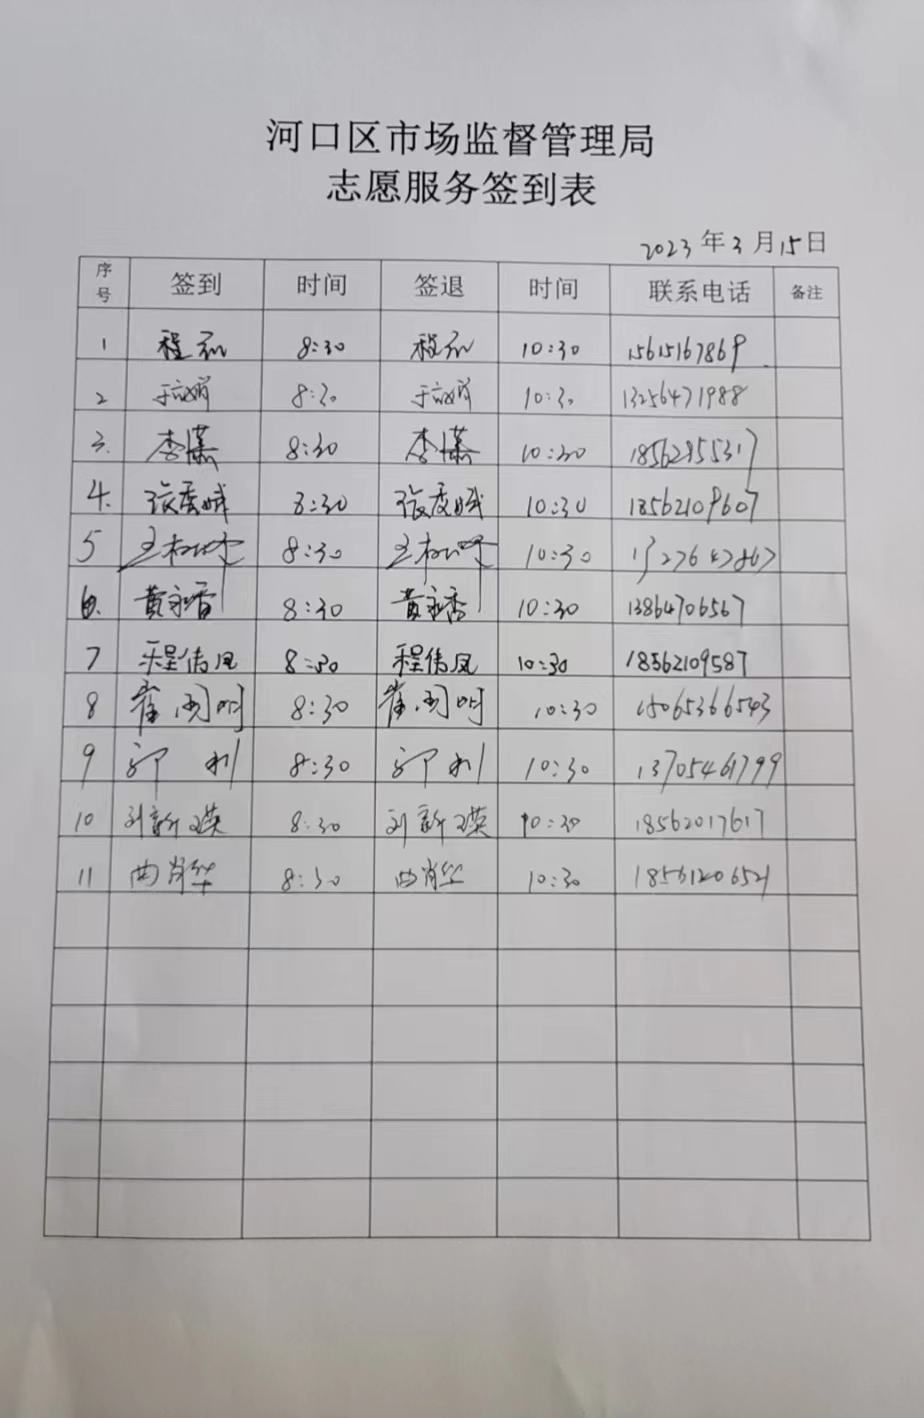 河口区市场监督管理局
志愿服务签到表
2023年3月15日
序号 签到 时间 签退 时间 联系电话 备注
1 程 8:30 程 10:30 15615167869
2 于 8:30 于 10:30 13256471988
3. 李潇 8:30 李潇 10:30 18562955317
4. 张 8:30 张 10:30 18562109607
5 王 8:30 王 10:30
6. 黄永香 8:30 黄永香 10:30 13864706567
7 程倩凤 8:30 程倩凤 10:30 18562109587
8 崔周明 8:30 崔周明 10:30 15065366543
9 郭利 8:30 郭利 10:30 13705461799
10 刘新瑛 8:30 刘新瑛 10:30 18562017617
11 曲肖华 8:30 曲肖华 10:30 18561206521